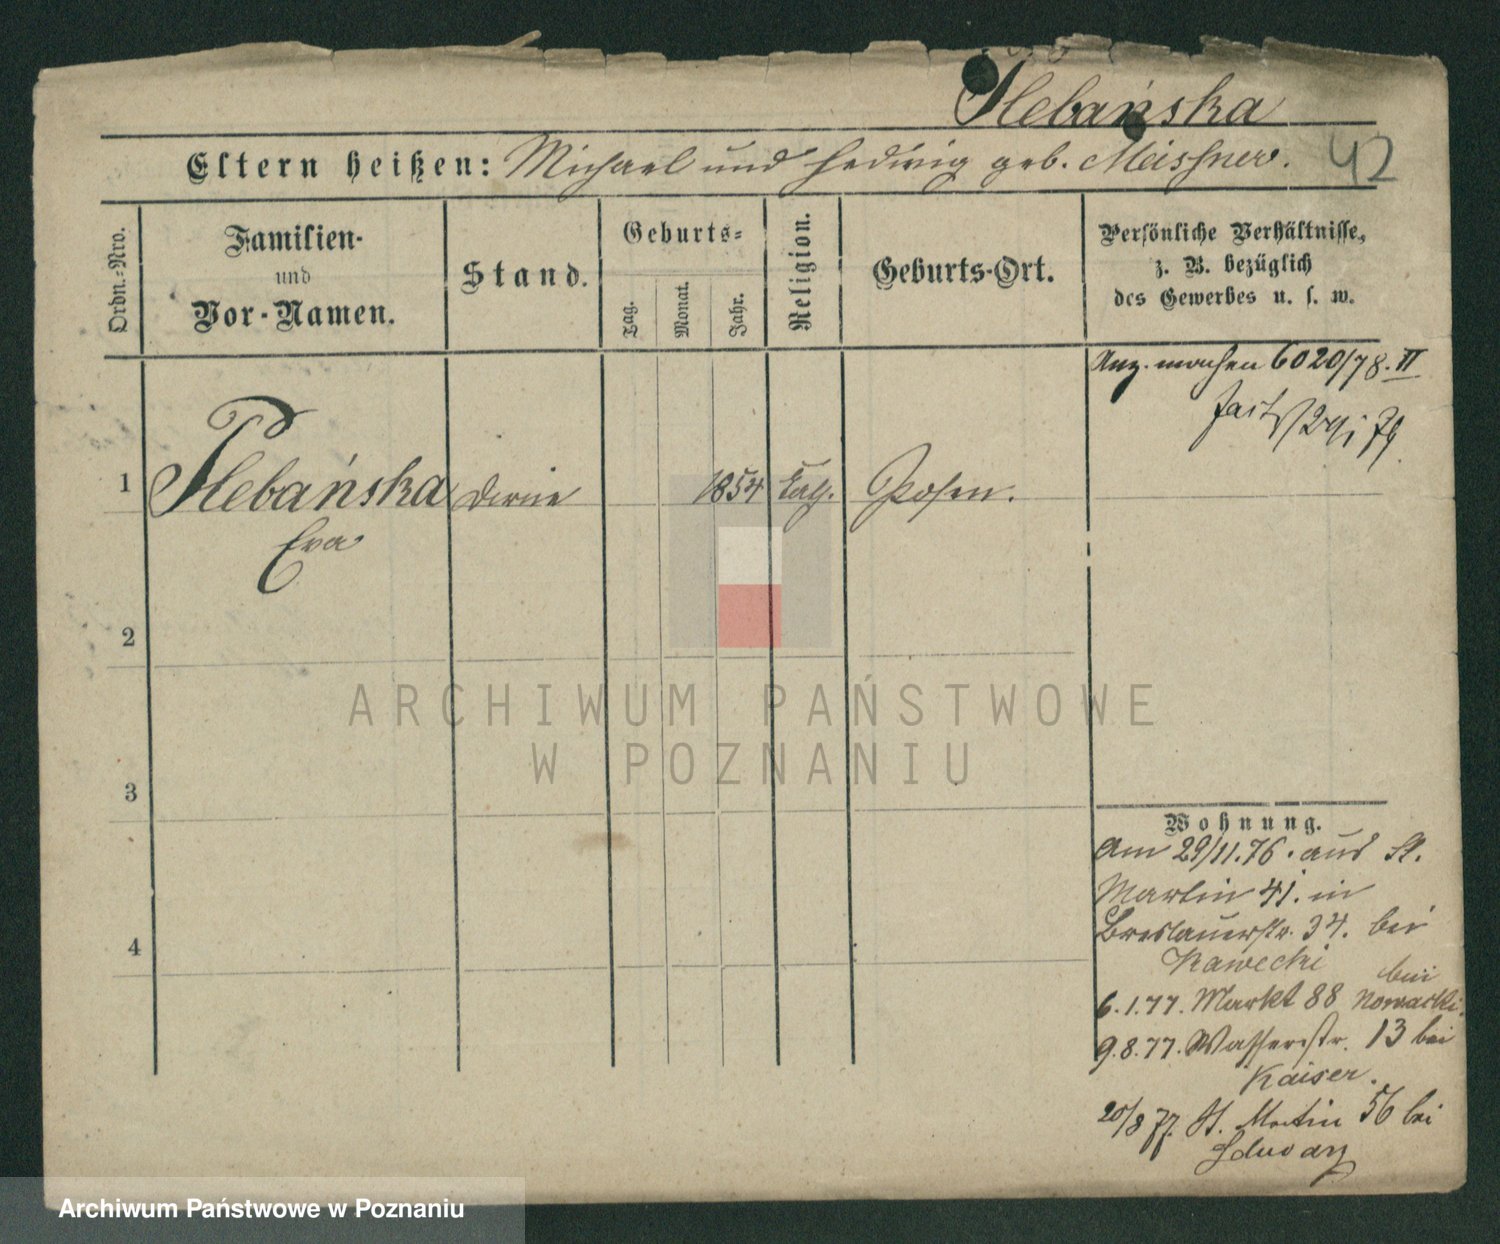 Plebańska
Eltern heißen: Michael und Hedwig geb. Meissner. 42
Ordn.-Nro.
Familien-
und
Vor-Namen.
Stand.
Geburts-
Tag.
Monat.
Jahr.
Religion.
Geburts-Ort.
Persönliche Verhältnisse,
z. B. bezüglich
des Gewerbes u. s. w.
Anz. machen 6020/78. II
1 Plebańska Dirne 1854 kath. Posen.
Eva
2
3
4
Wohnung.
Am 29/11.76. aus St.
Martin 41. in
Breslauerstr. 34. bei
Kawecki
6.1.77. Markt 88 bei Nowacki.
9.8.77. Wasserstr. 13 bei
Kaiser.
20/8 77. St. Martin 56 bei
Schwarz
ARCHIWUM PAŃSTWOWE
W POZNANIU
Archiwum Państwowe w Poznaniu